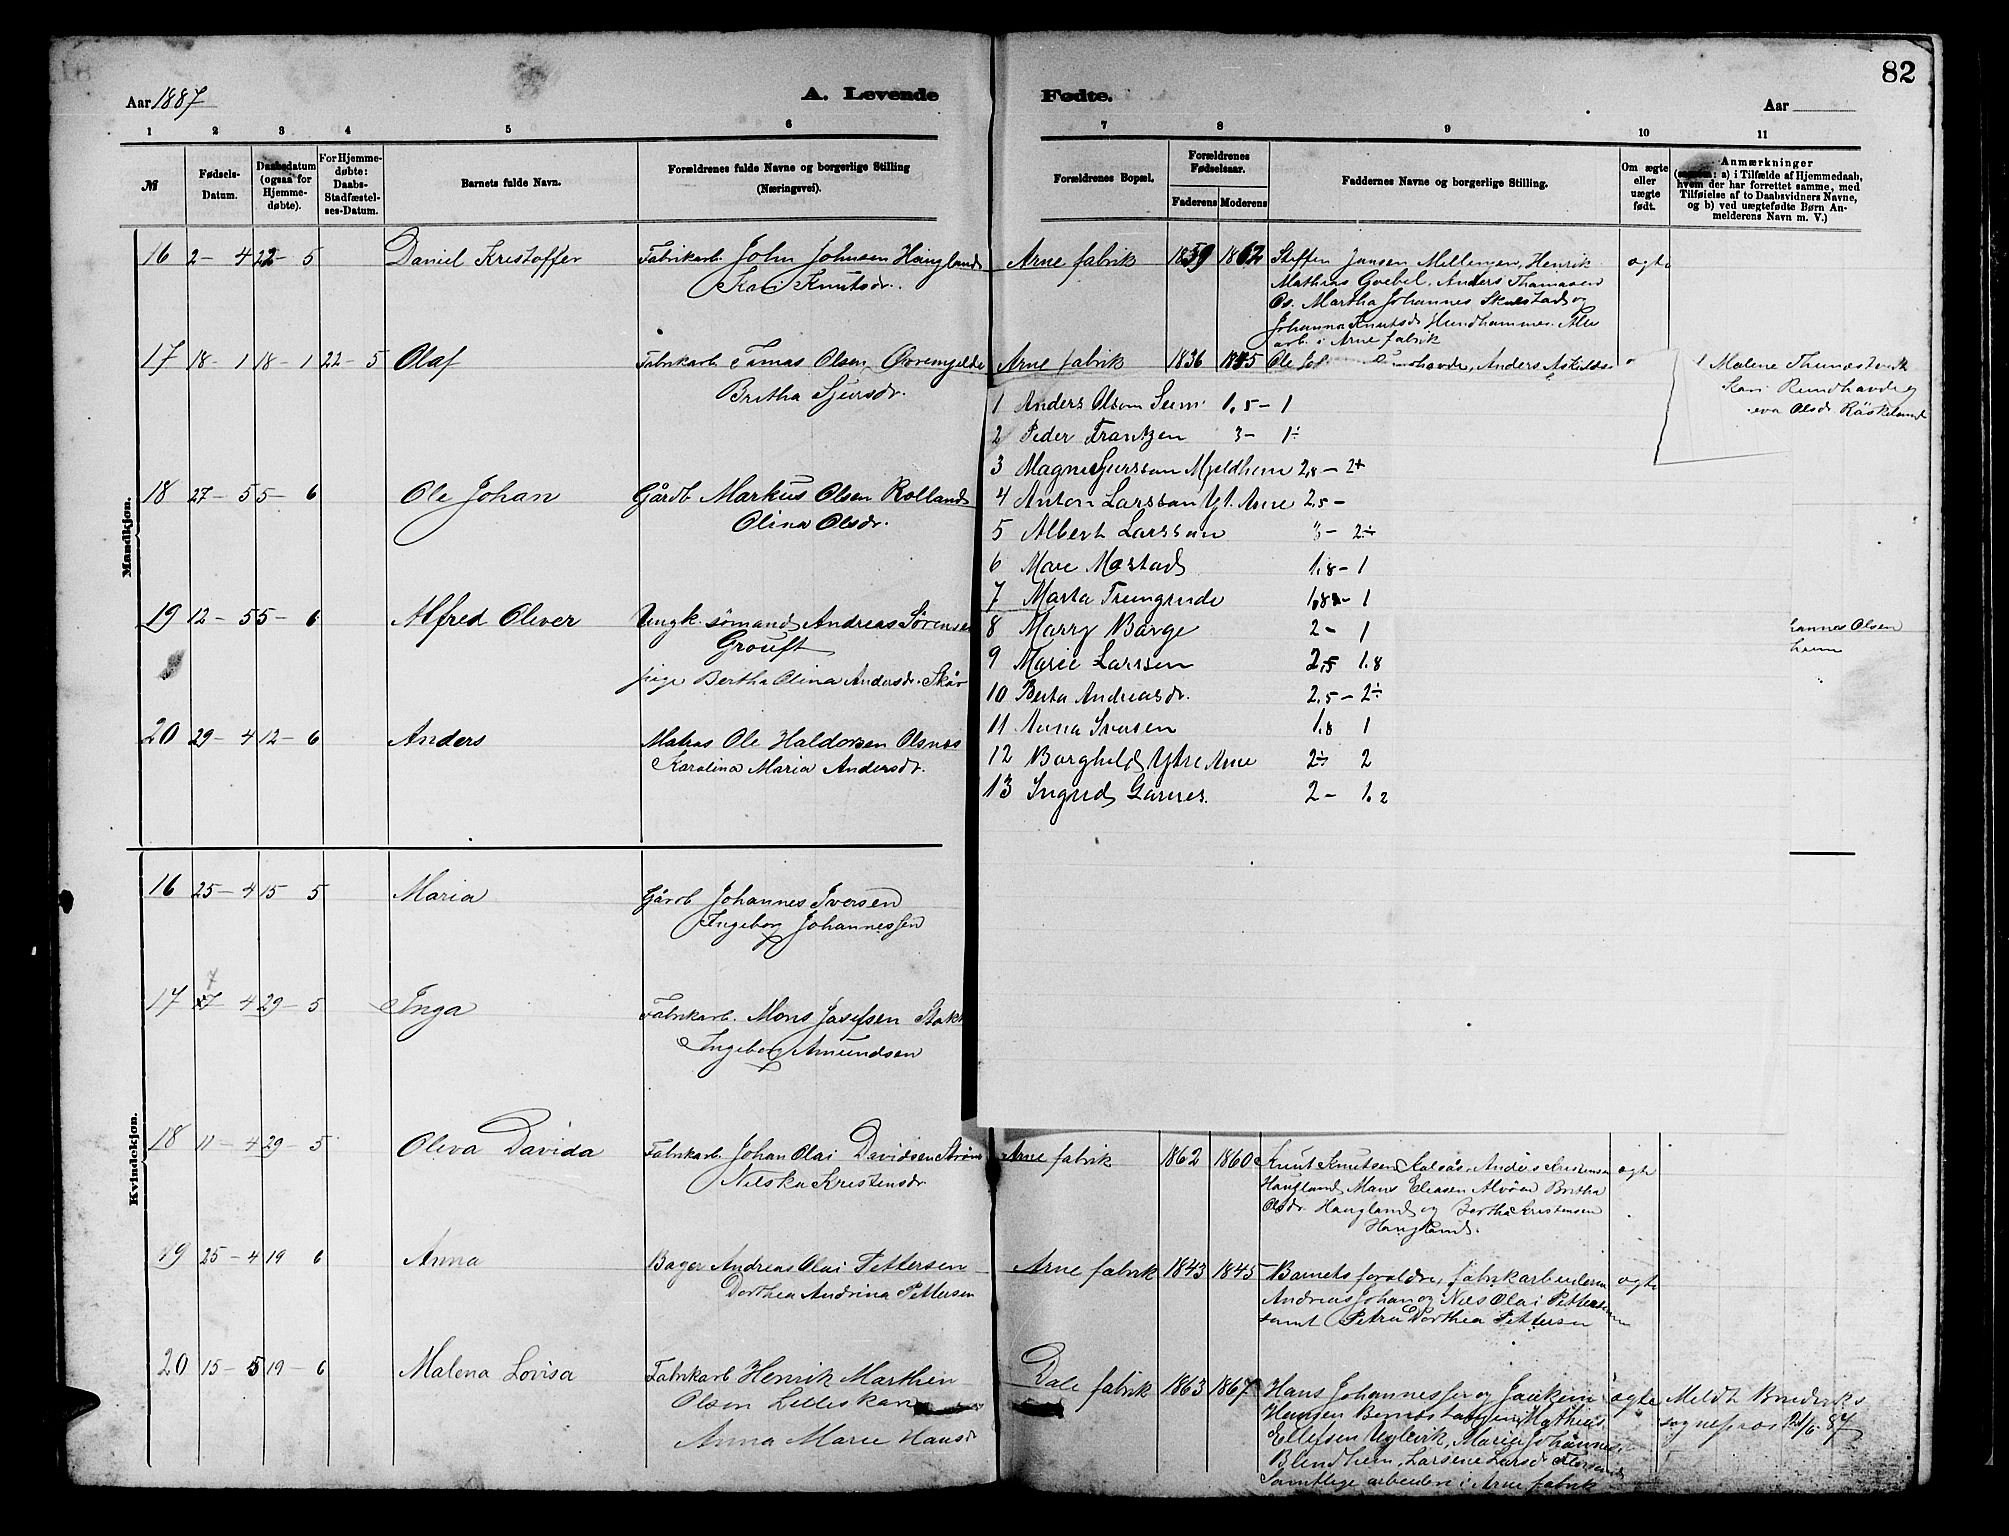 82
Aar 1887
A. Levende
Fødte.
Aar
1 2 3 4 5 6 7 8 9 10 11
№
Fødsels-
Datum.
Daabsdatum
(ogsaa for
Hjemme-
døbte).
For Hjemme-
døbte:
Daabs-
Stadfæstel-
ses-Datum.
Barnets fulde Navn.
Forældrenes fulde Navne og borgerlige Stilling
(Næringsvei).
Forældrenes Bopæl.
Forældrenes
Fødselsaar.
Faderens
Moderens
Faddernes Navne og borgerlige Stilling.
Om ægte
eller
uægte
født.
Anmærkninger
a) i Tilfælde af Hjemmedaab,
hvem der har forrettet samme, med
Tilføielse af to Daabsvidners Navne,
og b) ved uægtefødte Børn An-
melderens Navn m. V.)
Mandkjøn.
16 2 - 4 22 - 5 Daniel Kristoffer Fabrikarb. John Johnsen Haugland
Kari Knutsdr.
Arne fabrik 1859 1862 Steffen Jansen Mellingen, Henrik
Mathias Goebel, Anders Thomasen
Os. Martha Johannes Skulstad og
Johanna Knutsdr Hundhammer. Alle
arb. i Arne fabrik
ægte
17 18 - 1 18 - 1 22 - 5 Olaf Fabrikarb Tomas Olsen Øvremjelde
Britha Sjursdr.
Arne fabrik 1836 1845 Ole Anders Askildsen
Malene Thunestvedt
Kari Rundhavde og
Olsdr. Röskeland
18 27 - 5 5 - 6 Ole Johan Gårdb Markus Olsen Rolland
Olina Olsdr.
19 12 - 5 5 - 6 Alfred Oliver Ungk. sömand Andreas Sörensen
Grouft
pige Bertha Olina Andersdr. Skår
Olsen
20 29 - 4 12 - 6 Anders Matros Ole Haldorsen Olsnes
Karolina Maria Andersdr.
1 Anders Olsson Seim 1,5 - 1
2 Peder Frantzen 3 - 1÷
3 Magne Sjursson Mjeldheim 2,8 - 2+
4 Anton Larsson Yt. Arne 2,5 -
5 Albert Larsson 3 - 2÷
6 More Mostad 1,8 - 1
7 Marta Trengende 1,8 - 1
8 Marry Borge 2 - 1
9 Marie Larssen 2,5 1,8
10 Berta Andreasdr. 2,5 - 2÷
11 Anna Iversen 1,8 1
12 Borghild Ytre Arne 2÷ 2
13 Ingrid Garnes. 2 - 1,2
Kvindekjøn.
16 25 - 4 15 5 Maria Gårdb Johannes Iversen
Ingeborg Johannessen
17 7 - 4 29 - 5 Inga Fabrikarb. Mons Josefsen
Ingeborg Amundsen
18 11 - 4 29 - 5 Oleva Davida Fabrikarb. Johan Olai Davidsen Ström
Nilska Kristensdr
Arne fabrik 1862 1860 Knut Knutsen Kalsås, Anders Kristensen
Haugland, Mons Eliasen Alvöen Britha
Olsdr. Haugland og Bertha Kristensen
Haugland.
ægte
19 25 - 4 19 6 Anna Bager Andreas Olai Pettersen
Dorthea Andrina Pettersen
Arne fabrik 1843 1845 Barnets forældre, fabrikarbeiderne
Andreas Johan og Nils Olai Pettersen
samt Petra Dorthea Pettersen
ægte
20 15 - 5 19 - 6 Malena Lovisa Fabrikarb Henrik Marthin
Olsen Lilleskare
Anna Marie Hansdr
Dale fabrik 1863 1867 Hans Johannessen og Joakim
Hansen Mathias
Ellefsen Uglevik, Marie Johannes
Blindheim, Larsene Larsdr
Samtlige arbeidere i Arne fabrik
ægte
Meldt Bruviks
sogneprest 21/6 87